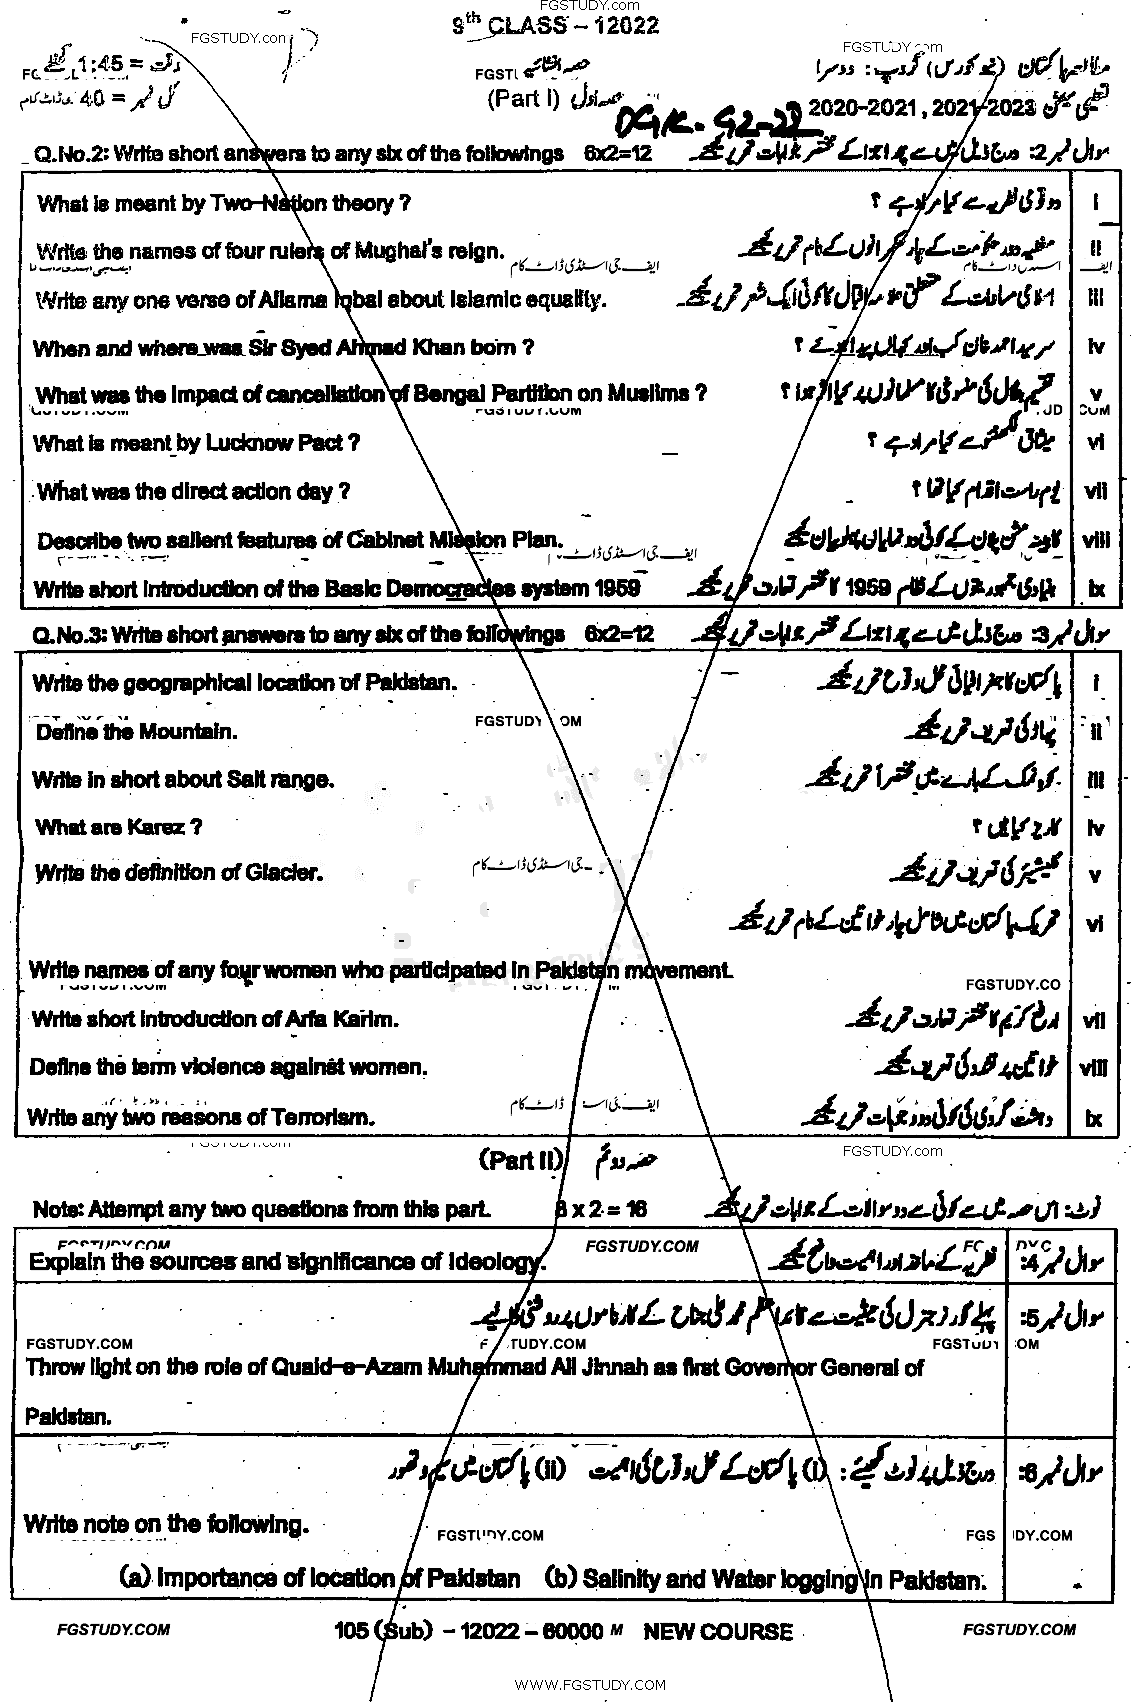 FGSTUDY.com
9th CLASS – 12022
FGSTUDY.com
FGSTUDY.com
وقت = 1:45 گھنٹے حصہ انشائیہ مطالعہ پاکستان (نیو کورس) گروپ: دوسرا
کل نمبر = 40 (Part I) حصہ اول تعلیمی سیشن 2020-2021, 2021-2023
DGK-G2-22
Q.No.2: Write short answers to any six of the followings 6x2=12 سوال نمبر 2: درج ذیل میں سے چھ اجزا کے مختصر جوابات تحریر کیجئے
What is meant by Two-Nation theory ? دو قومی نظریہ سے کیا مراد ہے ؟ i
Write the names of four rulers of Mughal's reign. مغلیہ دور حکومت کے چار حکمرانوں کے نام تحریر کیجئے ii
ایف جی اسٹڈی ڈاٹ کام
Write any one verse of Allama Iqbal about Islamic equality. اسلامی مساوات کے متعلق علامہ اقبال کا کوئی ایک شعر تحریر کیجئے iii
When and where was Sir Syed Ahmad Khan born ? سر سید احمد خان کب اور کہاں پیدا ہوئے ؟ iv
What was the Impact of cancellation of Bengal Partition on Muslims ? تقسیم بنگال کی منسوخی کا مسلمانوں پر کیا اثر ہوا ؟ v
FGSTUDY.COM
What is meant by Lucknow Pact ? میثاق لکھنؤ سے کیا مراد ہے ؟ vi
What was the direct action day ? یوم راست اقدام کیا تھا ؟ vii
Describe two salient features of Cabinet Mission Plan. کابینہ مشن پلان کے کوئی دو نمایاں پہلو بیان کیجئے viii
Write short introduction of the Basic Democracies system 1959 بنیادی جمہوریتوں کے نظام 1959 کا مختصر تعارف تحریر کیجئے ix
Q.No.3: Write short answers to any six of the followings 6x2=12 سوال نمبر 3: درج ذیل میں سے چھ اجزا کے مختصر جوابات تحریر کیجئے
Write the geographical location of Pakistan. پاکستان کا جغرافیائی محل وقوع تحریر کیجئے i
Define the Mountain. پہاڑ کی تعریف تحریر کیجئے ii
Write in short about Salt range. کوہ نمک کے بارے میں مختصراً تحریر کیجئے iii
What are Karez ? کاریز کیا ہیں ؟ iv
Write the definition of Glacier. گلیشیئر کی تعریف تحریر کیجئے v
تحریک پاکستان میں شامل چار خواتین کے نام تحریر کیجئے vi
Write names of any four women who participated in Pakistan movement.
FGSTUDY.CO
Write short introduction of Arfa Karim. ارفع کریم کا مختصر تعارف تحریر کیجئے vii
Define the term violence against women. خواتین پر تشدد کی تعریف کیجئے viii
Write any two reasons of Terrorism. دہشت گردی کی کوئی دو وجوہات تحریر کیجئے ix
(Part II) حصہ دوئم
FGSTUDY.com
Note: Attempt any two questions from this part. 8 x 2 = 16 نوٹ: اس حصہ میں سے کوئی سے دو سوالات کے جوابات تحریر کیجئے
FGSTUDY.COM
Explain the sources and significance of Ideology. نظریہ کے ماخذ اور اہمیت واضح کیجئے سوال نمبر 4:
پہلے گورنر جنرل کی حیثیت سے قائد اعظم محمد علی جناح کے کارناموں پر روشنی ڈالیے سوال نمبر 5:
FGSTUDY.COM
Throw light on the role of Quaid-e-Azam Muhammad Ali Jinnah as first Governor General of
Pakistan.
درج ذیل پر نوٹ لکھیئے: (i) پاکستان کے محل وقوع کی اہمیت (ii) پاکستان میں سیم و تھور سوال نمبر 6:
Write note on the following.
FGSTUDY.COM
(a) Importance of location of Pakistan (b) Salinity and Water logging in Pakistan.
FGSTUDY.COM 105 (Sub) – 12022 – 60000 M NEW COURSE FGSTUDY.COM
WWW.FGSTUDY.COM